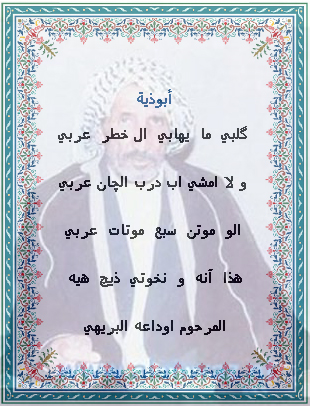 أبوذية
گلبي ما يهابي ال خطر عربي
و لا امشي اب درب الچان عربي
الو موتن سبع موتات عربي
هذا آنه و نخوتي ذيچ هيه
المرحوم اوداعه البريهي